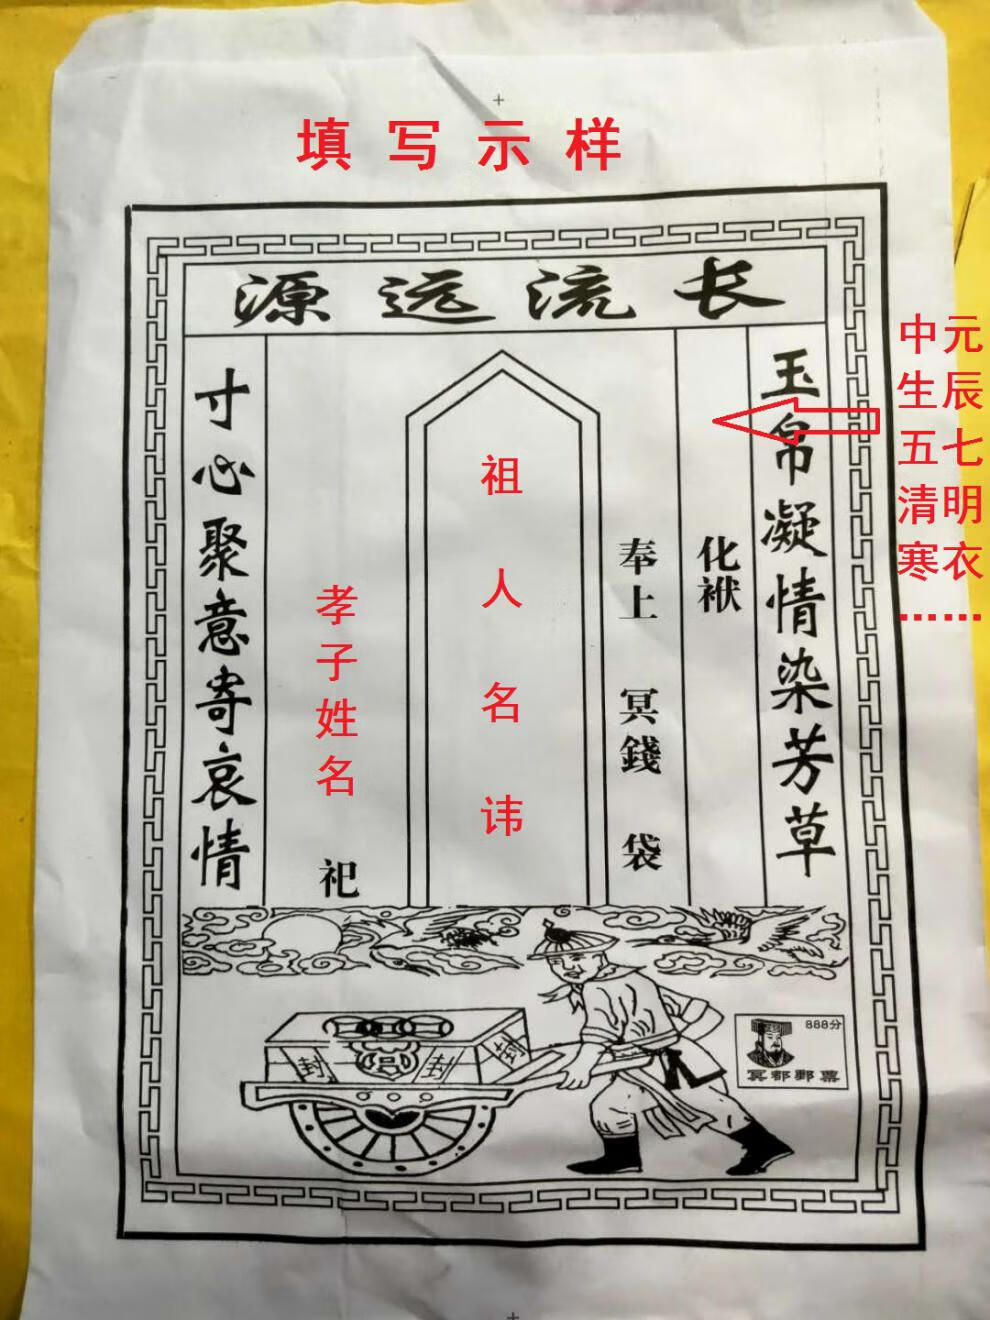 填写示样
源远流长
玉帛凝情染芳草
中元
生辰
五七
清明
寒衣
……
化袱
奉上 冥錢 袋
祖人名讳
孝子姓名 祀
寸心聚意寄哀情
封
封
封
888分
冥都郵票